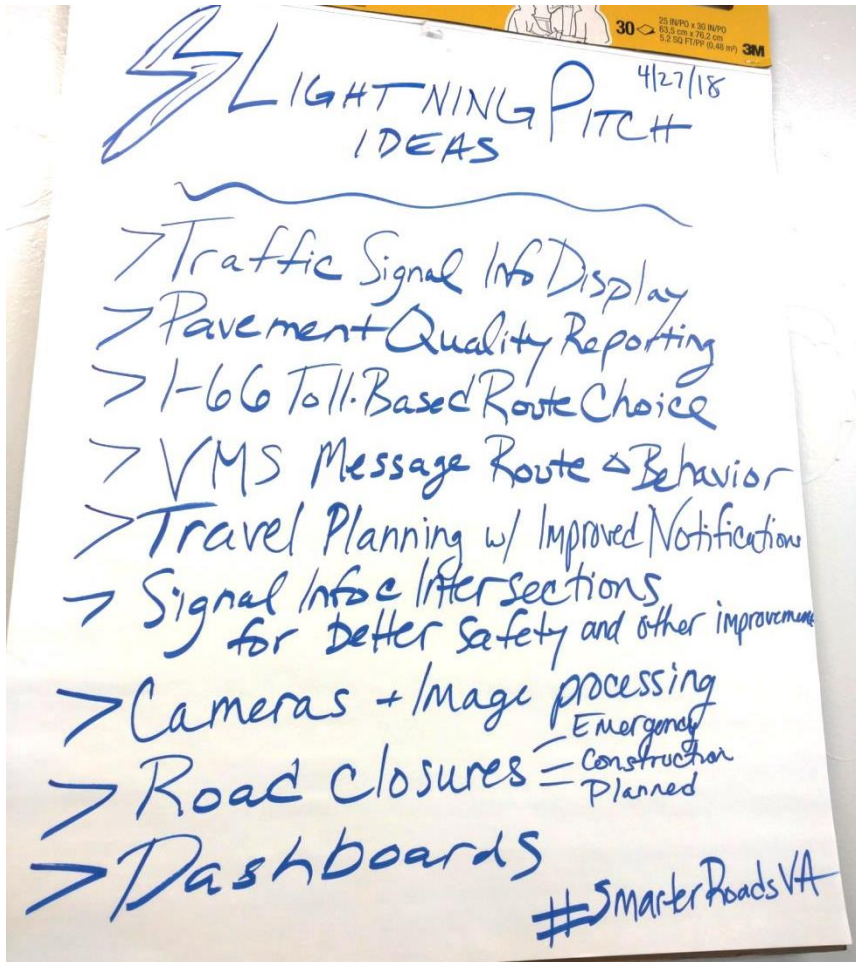 30 25 IN/PO x 30 IN/PO
63,5 cm x 76,2 cm
5.2 SQ FT/PP (0,48 m²) 3M
4/27/18
LIGHTNING PITCH
IDEAS
> Traffic Signal Info Display
> Pavement Quality Reporting
> I-66 Toll-Based Route Choice
> VMS Message Route Δ Behavior
> Travel Planning w/ Improved Notifications
> Signal Info @ Intersections
for better safety and other improvement
> Cameras + Image processing
> Road closures - Emergency
= Construction
- Planned
> Dashboards
#SmarterRoadsVA